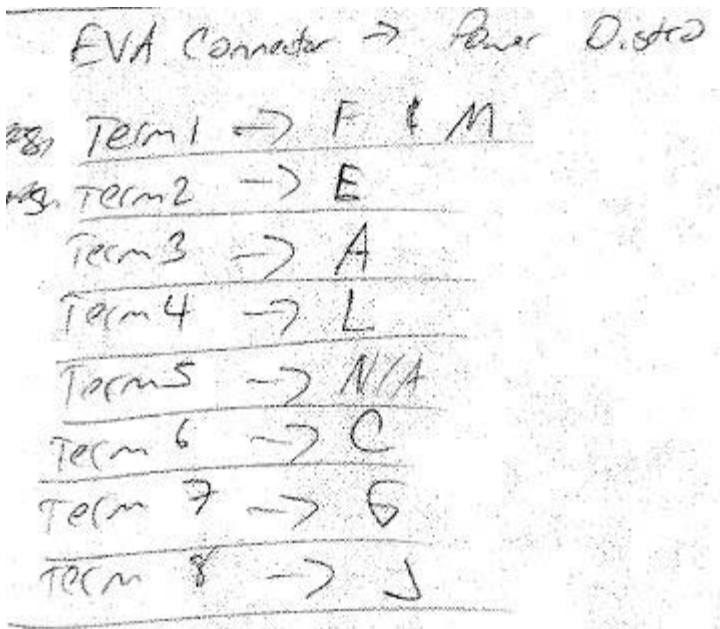 EVA Connector → Power Distro
Term 1 → F & M
Term 2 → E
Term 3 → A
Term 4 → L
Term 5 → N/A
Term 6 → C
Term 7 → G
Term 8 → J